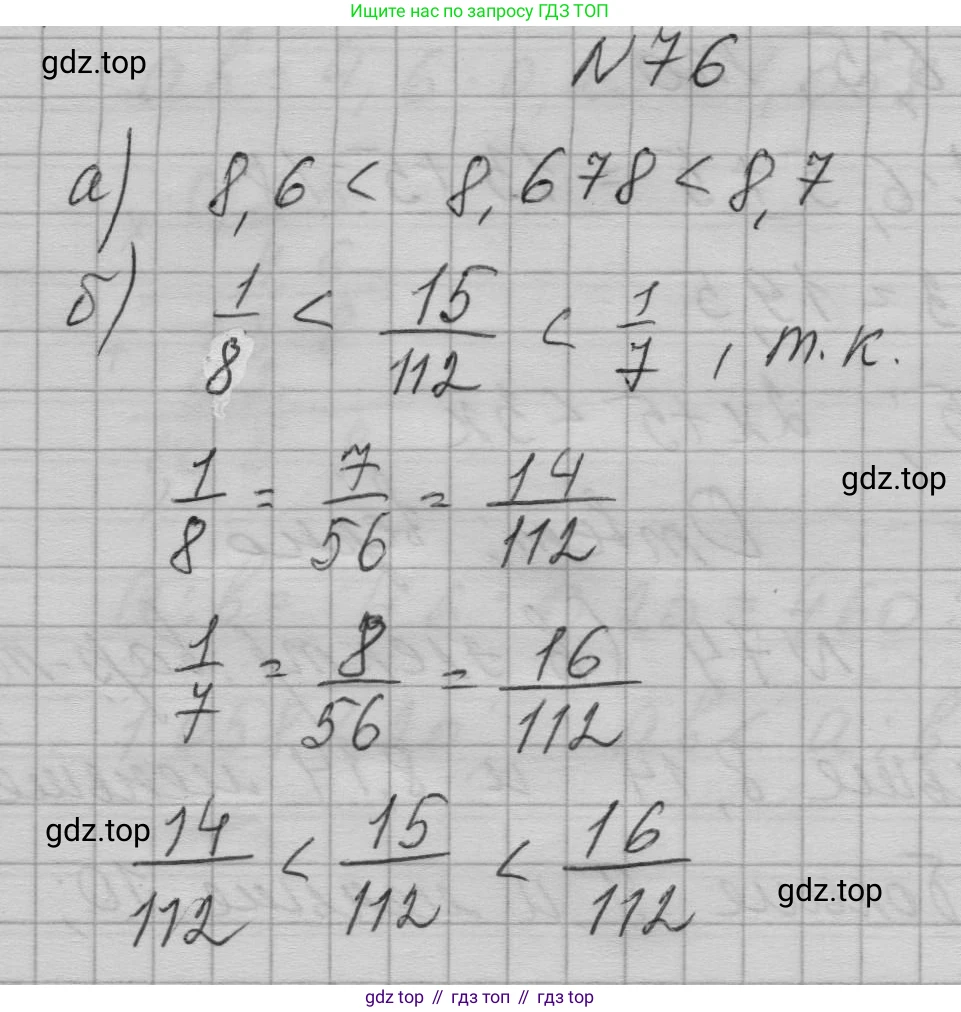 Ищите нас по запросу ГДЗ ТОП
gdz.top
N 76
а) 8,6 < 8,678 < 8,7
б) 1/8 < 15/112 < 1/7, т.к.
1/8 = 7/56 = 14/112
gdz.top
1/7 = 8/56 = 16/112
gdz.top
14/112 < 15/112 < 16/112
gdz.top
gdz top // гдз топ // гдз top